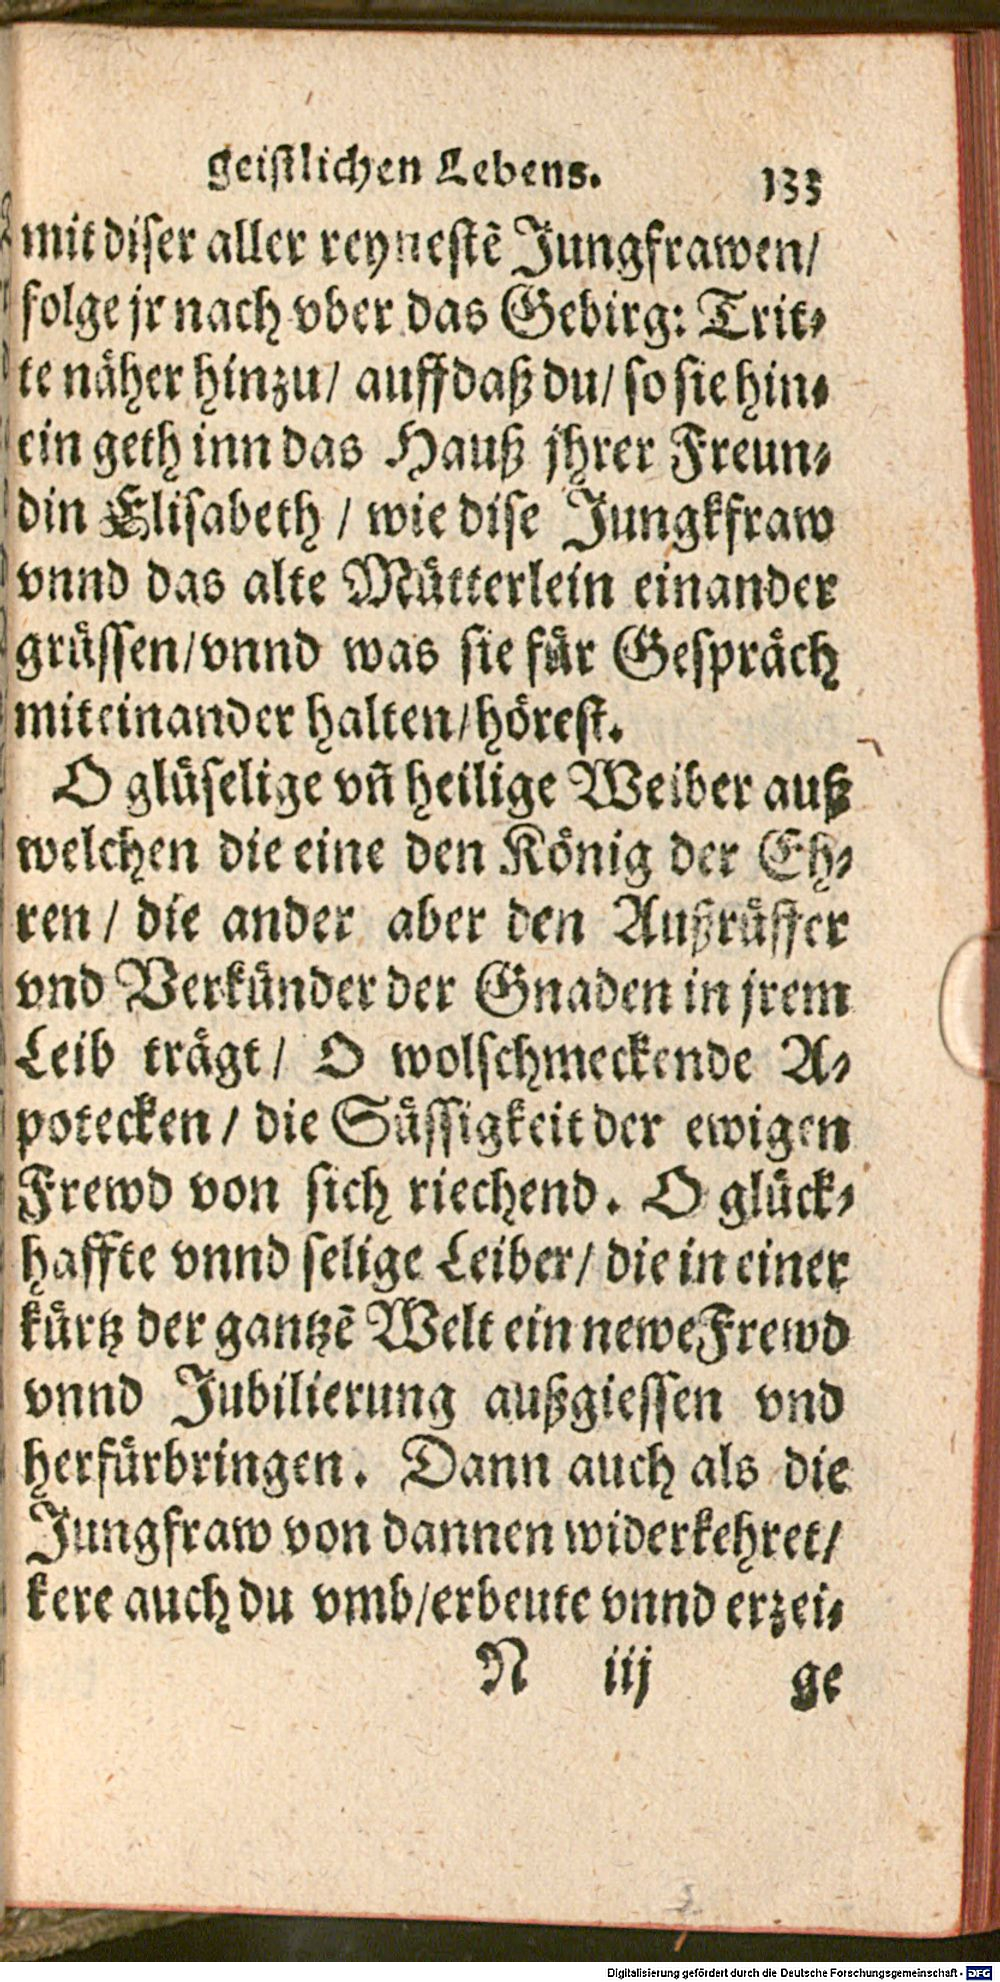 geistlichen Lebens. 133
mit diser aller reynestẽ Jungfrawen/
folge jr nach vber das Gebirg: Trit-
te näher hinzu/ auff daß du/ so sie hin-
ein geth inn das Hauß jhrer Freun-
din Elisabeth / wie dise Jungkfraw
vnnd das alte Mütterlein einander
grüssen/ vnnd was sie für Gespräch
miteinander halten/ hörest.
O glüselige vñ heilige Weiber auß
welchen die eine den König der Eh-
ren / die ander aber den Außrüffer
vnd Verkünder der Gnaden in jrem
Leib trägt/ O wolschmeckende A-
potecken / die Süssigkeit der ewigen
Frewd von sich riechend. O glück-
haffte vnnd selige Leiber/ die in einer
kürtz der gantzẽ Welt ein newe Frewd
vnnd Jubilierung außgiessen vnd
herfürbringen. Dann auch als die
Jungfraw von dannen widerkehret/
kere auch du vmb/ erbeute vnnd erzei-
N iij ge
Digitalisierung gefördert durch die Deutsche Forschungsgemeinschaft - DFG